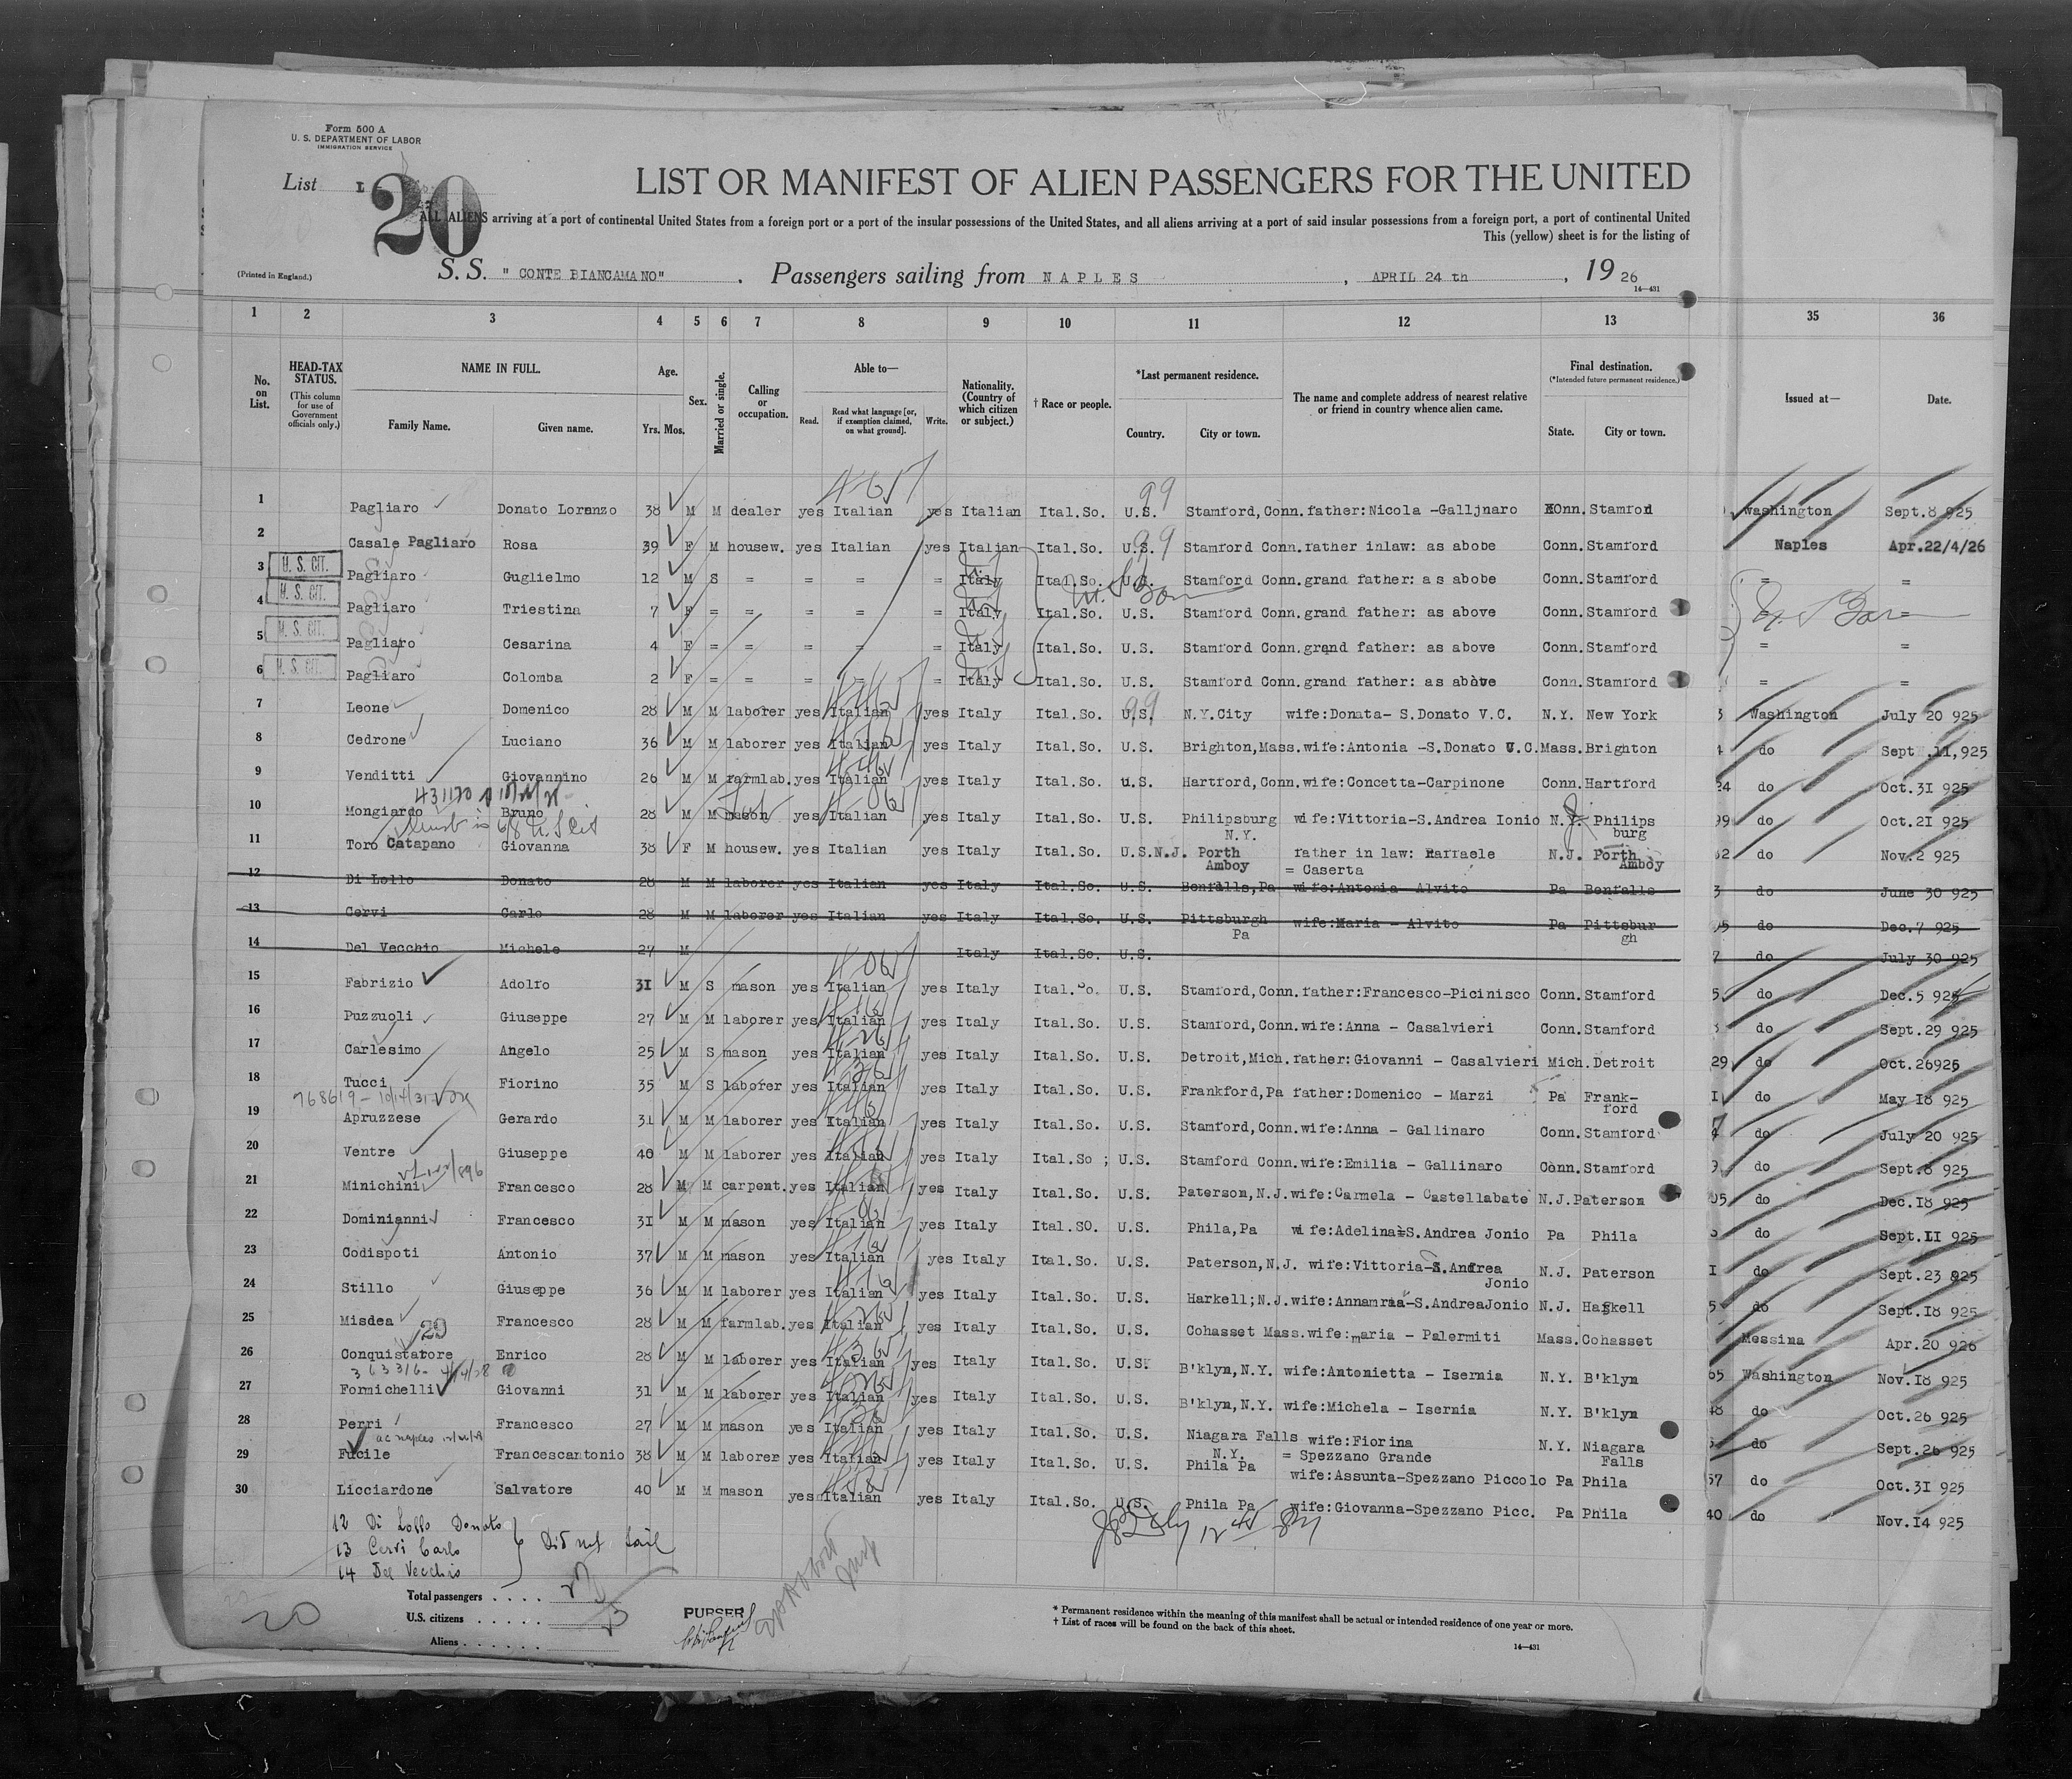 Form 500 A
U. S. DEPARTMENT OF LABOR
IMMIGRATION SERVICE
List
20
LIST OR MANIFEST OF ALIEN PASSENGERS FOR THE UNITED
ALL ALIENS arriving at a port of continental United States from a foreign port or a port of the insular possessions of the United States, and all aliens arriving at a port of said insular possessions from a foreign port, a port of continental United
This (yellow) sheet is for the listing of
(Printed in England.)
S. S. " CONTE BIANCAMANO" . Passengers sailing from N A P L E S , APRIL 24 th , 19 26
14—431
1 2 3 4 5 6 7 8 9 10 11 12 13 35 36
No. on List.
HEAD-TAX STATUS. (This column for use of Government officials only.)
NAME IN FULL. Family Name. Given name.
Age. Yrs. Mos.
Sex.
Married or single.
Calling or occupation.
Able to— Read. Read what language [or, if exemption claimed, on what ground]. Write.
Nationality. (Country of which citizen or subject.)
† Race or people.
*Last permanent residence. Country. City or town.
The name and complete address of nearest relative or friend in country whence alien came.
Final destination. (*Intended future permanent residence.) State. City or town.
Issued at—
Date.
1 Pagliaro Donato Lorenzo 38 M M dealer yes Italian yes Italian Ital.So. U.S. Stamford,Conn.father:Nicola -Galljnaro Conn.Stamford Washington Sept.8 925
99
2 Casale Pagliaro Rosa 39 F M housew. yes Italian yes Italian Ital.So. U.S. Stamford Conn.father inlaw: as abobe Conn.Stamford Naples Apr.22/4/26
99
3 U. S. CIT. Pagliaro Guglielmo 12 M S = = = = Italy Ital.So. U.S. Stamford Conn.grand father: as abobe Conn.Stamford = =
4 U. S. CIT. Pagliaro Triestina 7 F = = = = = Italy Ital.So. U.S. Stamford Conn.grand father: as above Conn.Stamford =
5 U. S. CIT. Pagliaro Cesarina 4 F = = = = = Italy Ital.So. U.S. Stamford Conn.grand father: as above Conn.Stamford = =
6 U. S. CIT. Pagliaro Colomba 2 F = = = = = Italy Ital.So. U.S. Stamford Conn.grand father: as above Conn.Stamford = =
7 Leone Domenico 28 M M laborer yes Italian yes Italy Ital.So. U.S. N.Y.City wife:Donata- S.Donato V.C. N.Y. New York 3 Washington July 20 925
99
8 Cedrone Luciano 36 M M laborer yes Italian yes Italy Ital.So. U.S. Brighton,Mass.wife:Antonia -S.Donato V.C.Mass.Brighton 4 do Sept.11,925
9 Venditti Giovannino 26 M M farmlab.yes Italian yes Italy Ital.So. U.S. Hartford,Conn.wife:Concetta-Carpinone Conn.Hartford 24 do Oct.31 925
10 Mongiardo Bruno 28 M M mason yes Italian yes Italy Ital.So. U.S. Philipsburg N.Y. wife:Vittoria-S.Andrea Ionio N.Y. Philips burg 99 do Oct.21 925
11 Toro Catapano Giovanna 38 F M housew. yes Italian yes Italy Ital.So. U.S. N.J. Porth Amboy father in law: Raffaele = Caserta N.J. Porth Amboy 62 do Nov.2 925
12 Di Lollo Donato 28 M M laborer yes Italian yes Italy Ital.So. U.S. Benfalls,Pa wife:Antonia Alvito Pa Benfalls 3 do June 30 925
13 Cervi Carlo 28 M M laborer yes Italian yes Italy Ital.So. U.S. Pittsburgh Pa wife:Maria - Alvito Pa Pittsbur gh do Dec.7 925
14 Del Vecchio Michele 27 M Italy Ital.So. U.S. 7 do July 30 925
15 Fabrizio Adolfo 31 M S mason yes Italian yes Italy Ital.So. U.S. Stamford,Conn.father:Francesco-Picinisco Conn.Stamford 5 do Dec.5 925
16 Puzzuoli Giuseppe 27 M M laborer yes Italian yes Italy Ital.So. U.S. Stamford,Conn.wife:Anna - Casalvieri Conn.Stamford do Sept.29 925
17 Carlesimo Angelo 25 M S mason yes Italian yes Italy Ital.So. U.S. Detroit,Mich.father:Giovanni - Casalvieri Mich.Detroit 29 do Oct.26925
18 Tucci Fiorino 35 M S laborer yes Italian yes Italy Ital.So. U.S. Frankford,Pa father:Domenico - Marzi Pa Frank- ford 1 do May 18 925
19 Apruzzese Gerardo 31 M M laborer yes Italian yes Italy Ital.So. U.S. Stamford,Conn.wife:Anna - Gallinaro Conn.Stamford 4 do July 20 925
20 Ventre Giuseppe 40 M M laborer yes Italian yes Italy Ital.So ; U.S. Stamford Conn.wife:Emilia - Gallinaro Conn.Stamford 9 do Sept.8 925
21 Minichini Francesco 28 M M carpent.yes Italian yes Italy Ital.So. U.S. Paterson,N.J.wife:Carmela - Castellabate N.J.Paterson 05 do Dec.18 925
22 Dominianni Francesco 31 M M mason yes Italian yes Italy Ital.SO. U.S. Phila,Pa wife:Adelina-S.Andrea Jonio Pa Phila do Sept.11 925
23 Codispoti Antonio 37 M M mason yes Italian yes Italy Ital.So. U.S. Paterson,N.J. wife:Vittoria-S.Andrea Jonio N.J. Paterson 1 do Sept.23 925
24 Stillo Giuseppe 36 M M laborer yes Italian yes Italy Ital.So. U.S. Harkell;N.J.wife:Annamria-S.AndreaJonio N.J. Haskell 5 do Sept.18 925
25 Misdea Francesco 28 M M farmlab.yes Italian yes Italy Ital.So. U.S. Cohasset Mass.wife:maria - Palermiti Mass.Cohasset Messina Apr.20 926
29
26 Conquistatore Enrico 28 M M laborer yes Italian yes Italy Ital.So. U.S. B'klyn,N.Y. wife:Antonietta - Isernia N.Y. B'klyn 65 Washington Nov.18 925
363316- 4/14/28
27 Formichelli Giovanni 31 M M laborer yes Italian yes Italy Ital.So. U.S. B'klyn,N.Y. wife:Michela - Isernia N.Y. B'klyn 48 do Oct.26 925
28 Perri Francesco 27 M M mason yes Italian yes Italy Ital.So. U.S. Niagara Falls N.Y. wife:Fiorina = Spezzano Grande N.Y. Niagara Falls do Sept.26 925
29 Fucile Francescantonio 38 M M laborer yes Italian yes Italy Ital.So. U.S. Phila Pa wife:Assunta-Spezzano Piccolo Pa Phila 57 do Oct.31 925
30 Licciardone Salvatore 40 M M mason yes Italian yes Italy Ital.So. U.S. Phila Pa wife:Giovanna-Spezzano Picc. Pa Phila 40 do Nov.14 925
12 Di Lollo Donato
13 Cervi Carlo
14 Del Vecchio
Did not sail
Total passengers . . . .
U.S. citizens . . . . .
Aliens . . . . . .
20
PURSER
* Permanent residence within the meaning of this manifest shall be actual or intended residence of one year or more.
† List of races will be found on the back of this sheet.
14—431